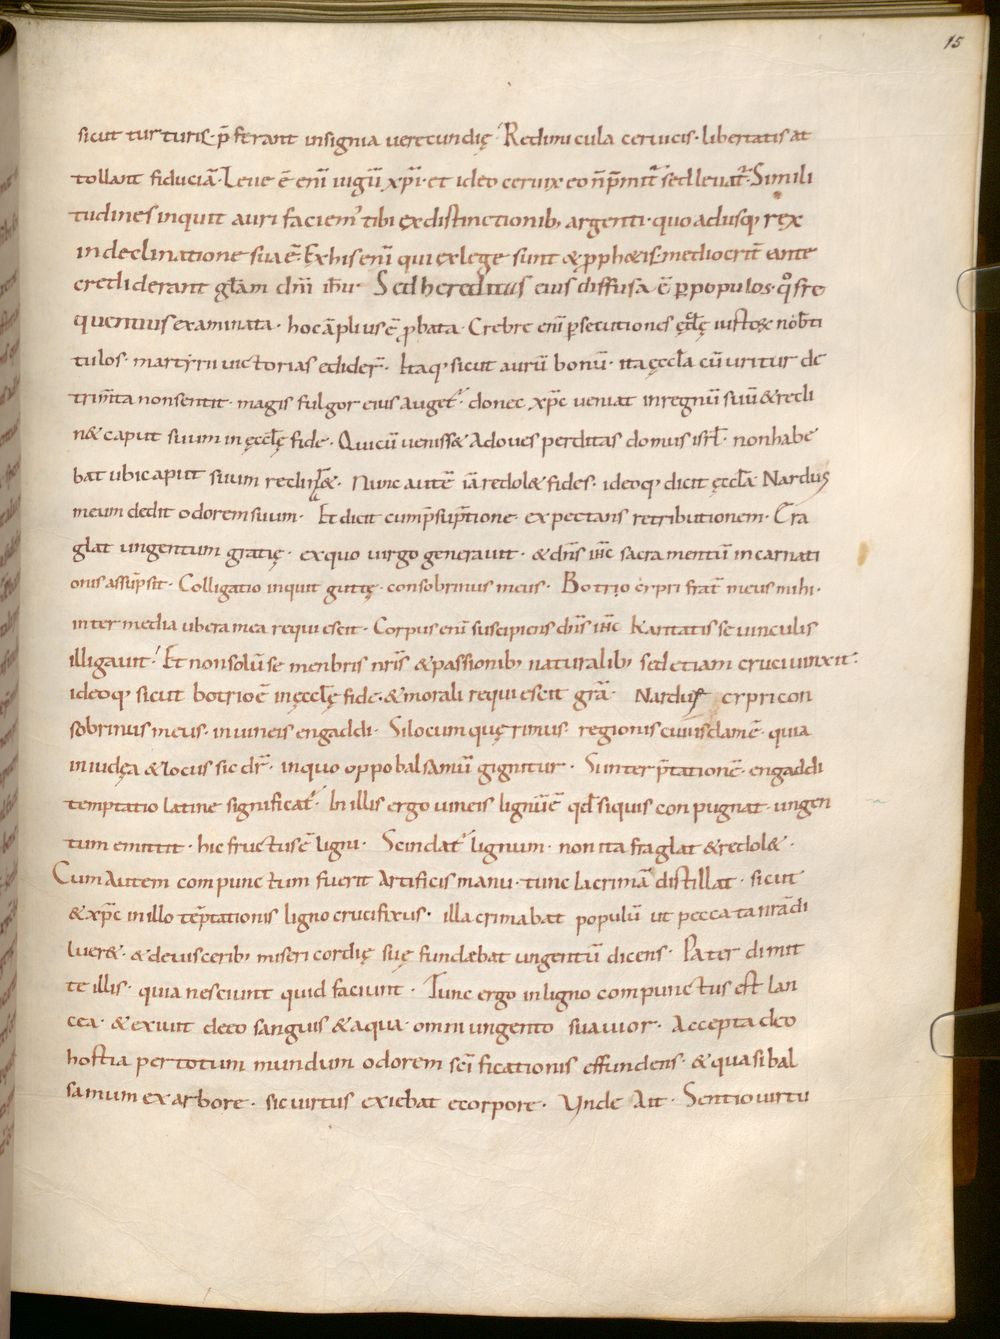 15
sicut turturis· p̄ferant insignia verecundię· Redimicula cervicis· libertatis at
tollant fiduciā· Leve ē eni̅ iugū xp̅i· et ideo cervix eo n̄ p̄mit᷑ sed levat᷑· Simili
tudines inquit auri faciem᷑ tibi ex distinctionib; argenti· quoadusq; rex
in declinatione sua ē· Ex his eni̅ qui ex lege sunt & p̱ph&is· mediocrit̄ ante
crediderant gl̅am dn̅i ih̅u· Sed hereditas eius diffusa ē p̱ populos· q̊ fre
quentius examinata· hoc āplius ē p̱bata· Crebre eni̅ p̱secutiones ęccl̅ę iustoꝝ nob̅ ti
tulos· martyrii victorias edider̄· Itaq; sicut aurū bonū· ita ęccl̅a cū uritur de
trim̅ta non sentit· magis fulgor eius auget᷑· donec xp̅c veniat in regnū suū & recli
n& caput suum in ęccl̅ę fide· Qui cū veniss& ad oves perditas domus isrl̅· non habe
bat ubi caput suum reclin&· Nunc autē iā redol& fides· ideoq; dicit ęccl̅a Nardus
meum dedit odorem suum· Et dicit cum p̄sūptione· expectans retributionem· Fra
glat ungentum gratię· ex quo virgo generavit· & dn̅s ih̅c sacramentū incarnati
onis assūpsit· Colligatio inquit guttę· consobrinus meus· Botrio cypri frat̄ meus mihi·
inter media ubera mea requiescit· Corpus eni̅ suscipiens dn̅s ih̅c karitatis se vinculis
illigavit· Et non solū se membris nr̅is & passionib; naturalib; sed etiam cruci vinxit·
ideoq; sicut botrio ē in ęccl̅ę fide· & morali requiescit gr̅a· Nardus cypri con
sobrinus meus· in vineis engaddi· Si locum quęrimus· regionis cuiusdam ē· quia
in iudęa & locus sic dr̅· in quo oppobalsamū gignitur· Si interp̄tationē· engaddi
temptatio latine significat᷑· In illis ergo vineis lignū ē qd̅ si quis conpugnat· ungen
tum emittit· hic fructus ē ligni· Scindat᷑ lignum· non ita fraglat & redol&·
Cum autem compunctum fuerit artificis manu· tunc lacrimā distillat· sicut
& xp̅c in illo tēptationis ligno crucifixus· illacrimabat populū ut peccata nr̅a di
luer&· & de viscerib; misericordię suę fundæbat ungentū dicens· Pater dimit
te illis· quia nesciunt quid faciunt· Tunc ergo in ligno compunctus est lan
cea· & exivit de eo sanguis & aqua· omni ungento suavior· Accepta deo
hostia per totum mundum odorem sc̅ificationis effundens· & quasi bal
samum ex arbore· sic virtus exiebat e corpore· Unde ait· Sentio virtu